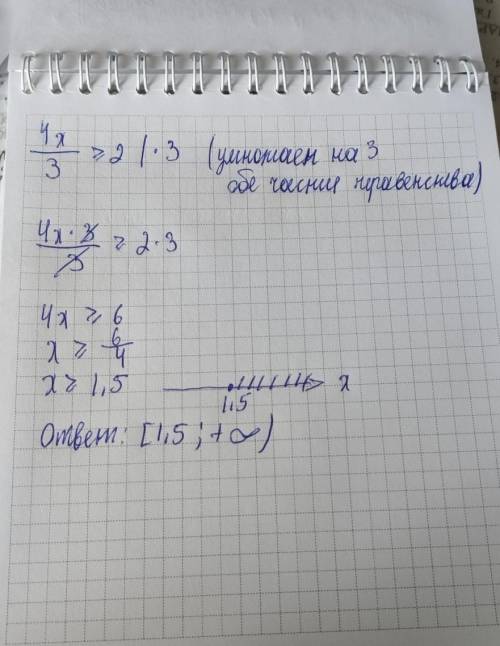 4x/3 ≥ 2 | · 3 (умножаем на 3
обе части неравенства)
4x · 3/3 ≥ 2 · 3
4x ≥ 6
x ≥ 6/4
x ≥ 1,5
1,5 x
Ответ: [1,5 ; + ∞)